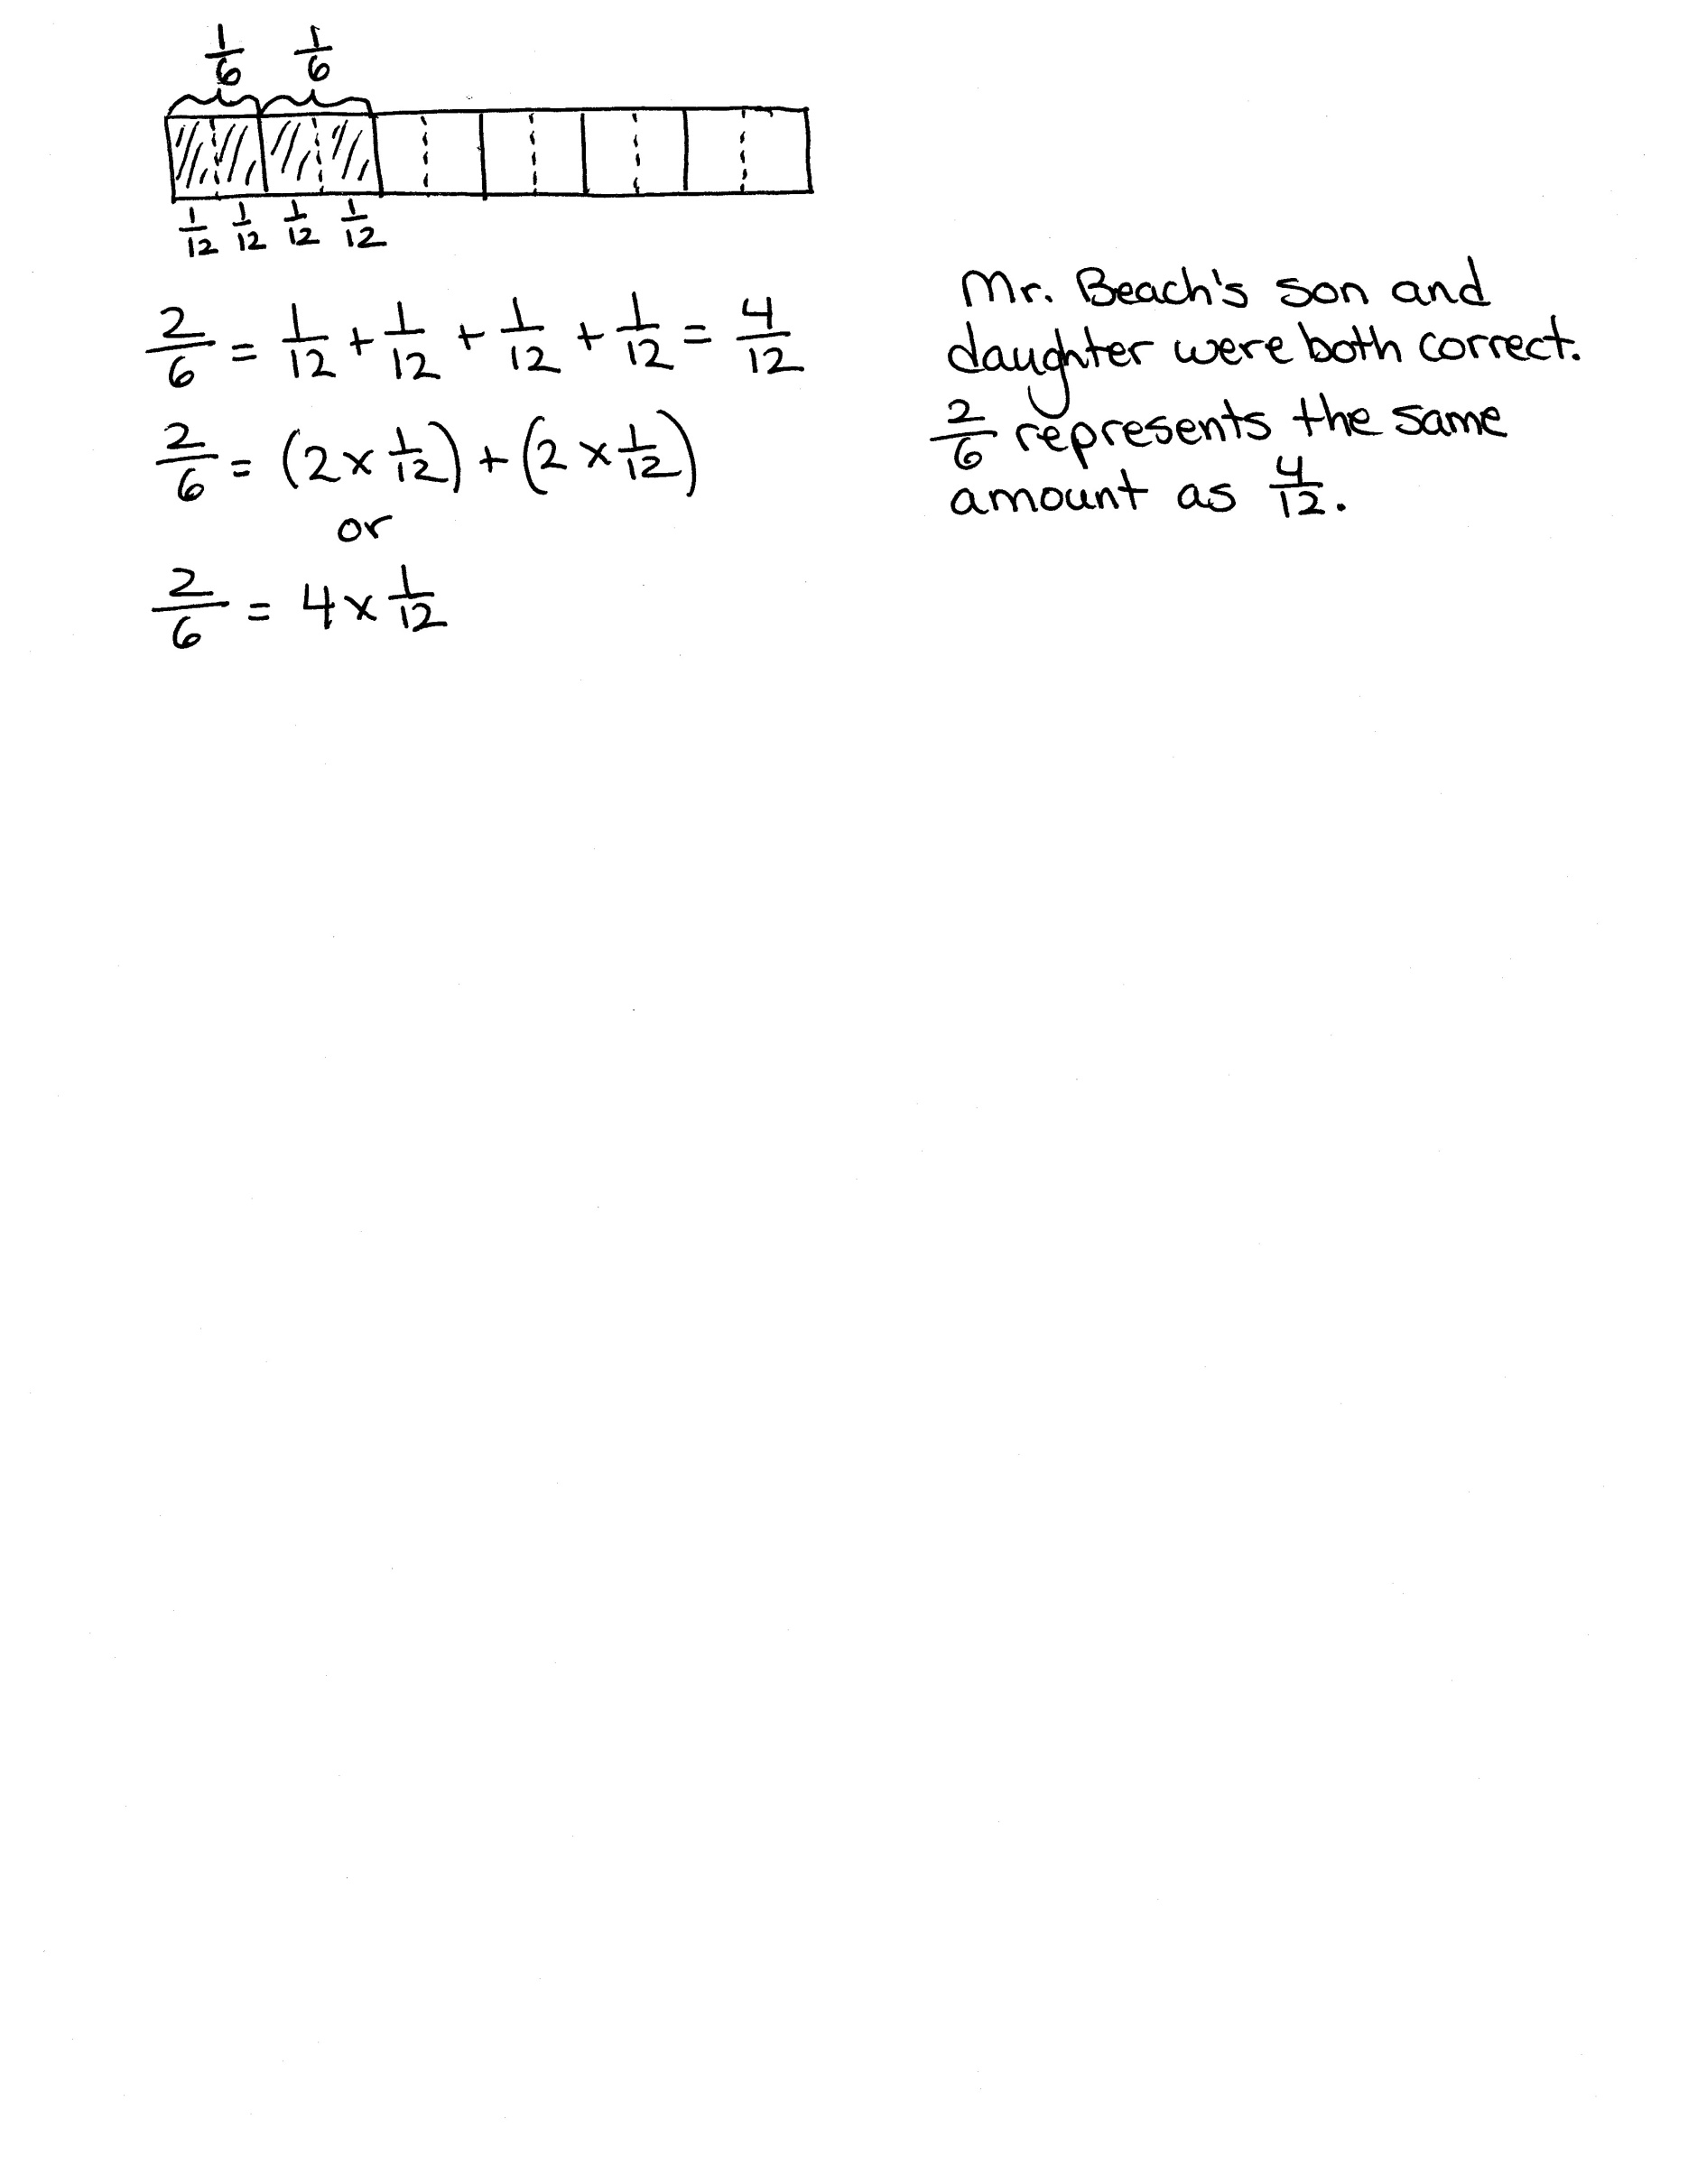 1/6 1/6
1/12 1/12 1/12 1/12
2/6 = 1/12 + 1/12 + 1/12 + 1/12 = 4/12
2/6 = (2 x 1/12) + (2 x 1/12)
or
2/6 = 4 x 1/12
Mr. Beach's son and
daughter were both correct.
2/6 represents the same
amount as 4/12.